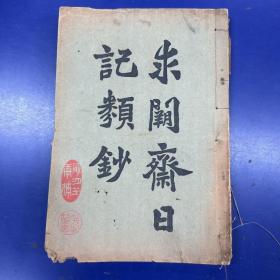 求闕齋日
記類鈔